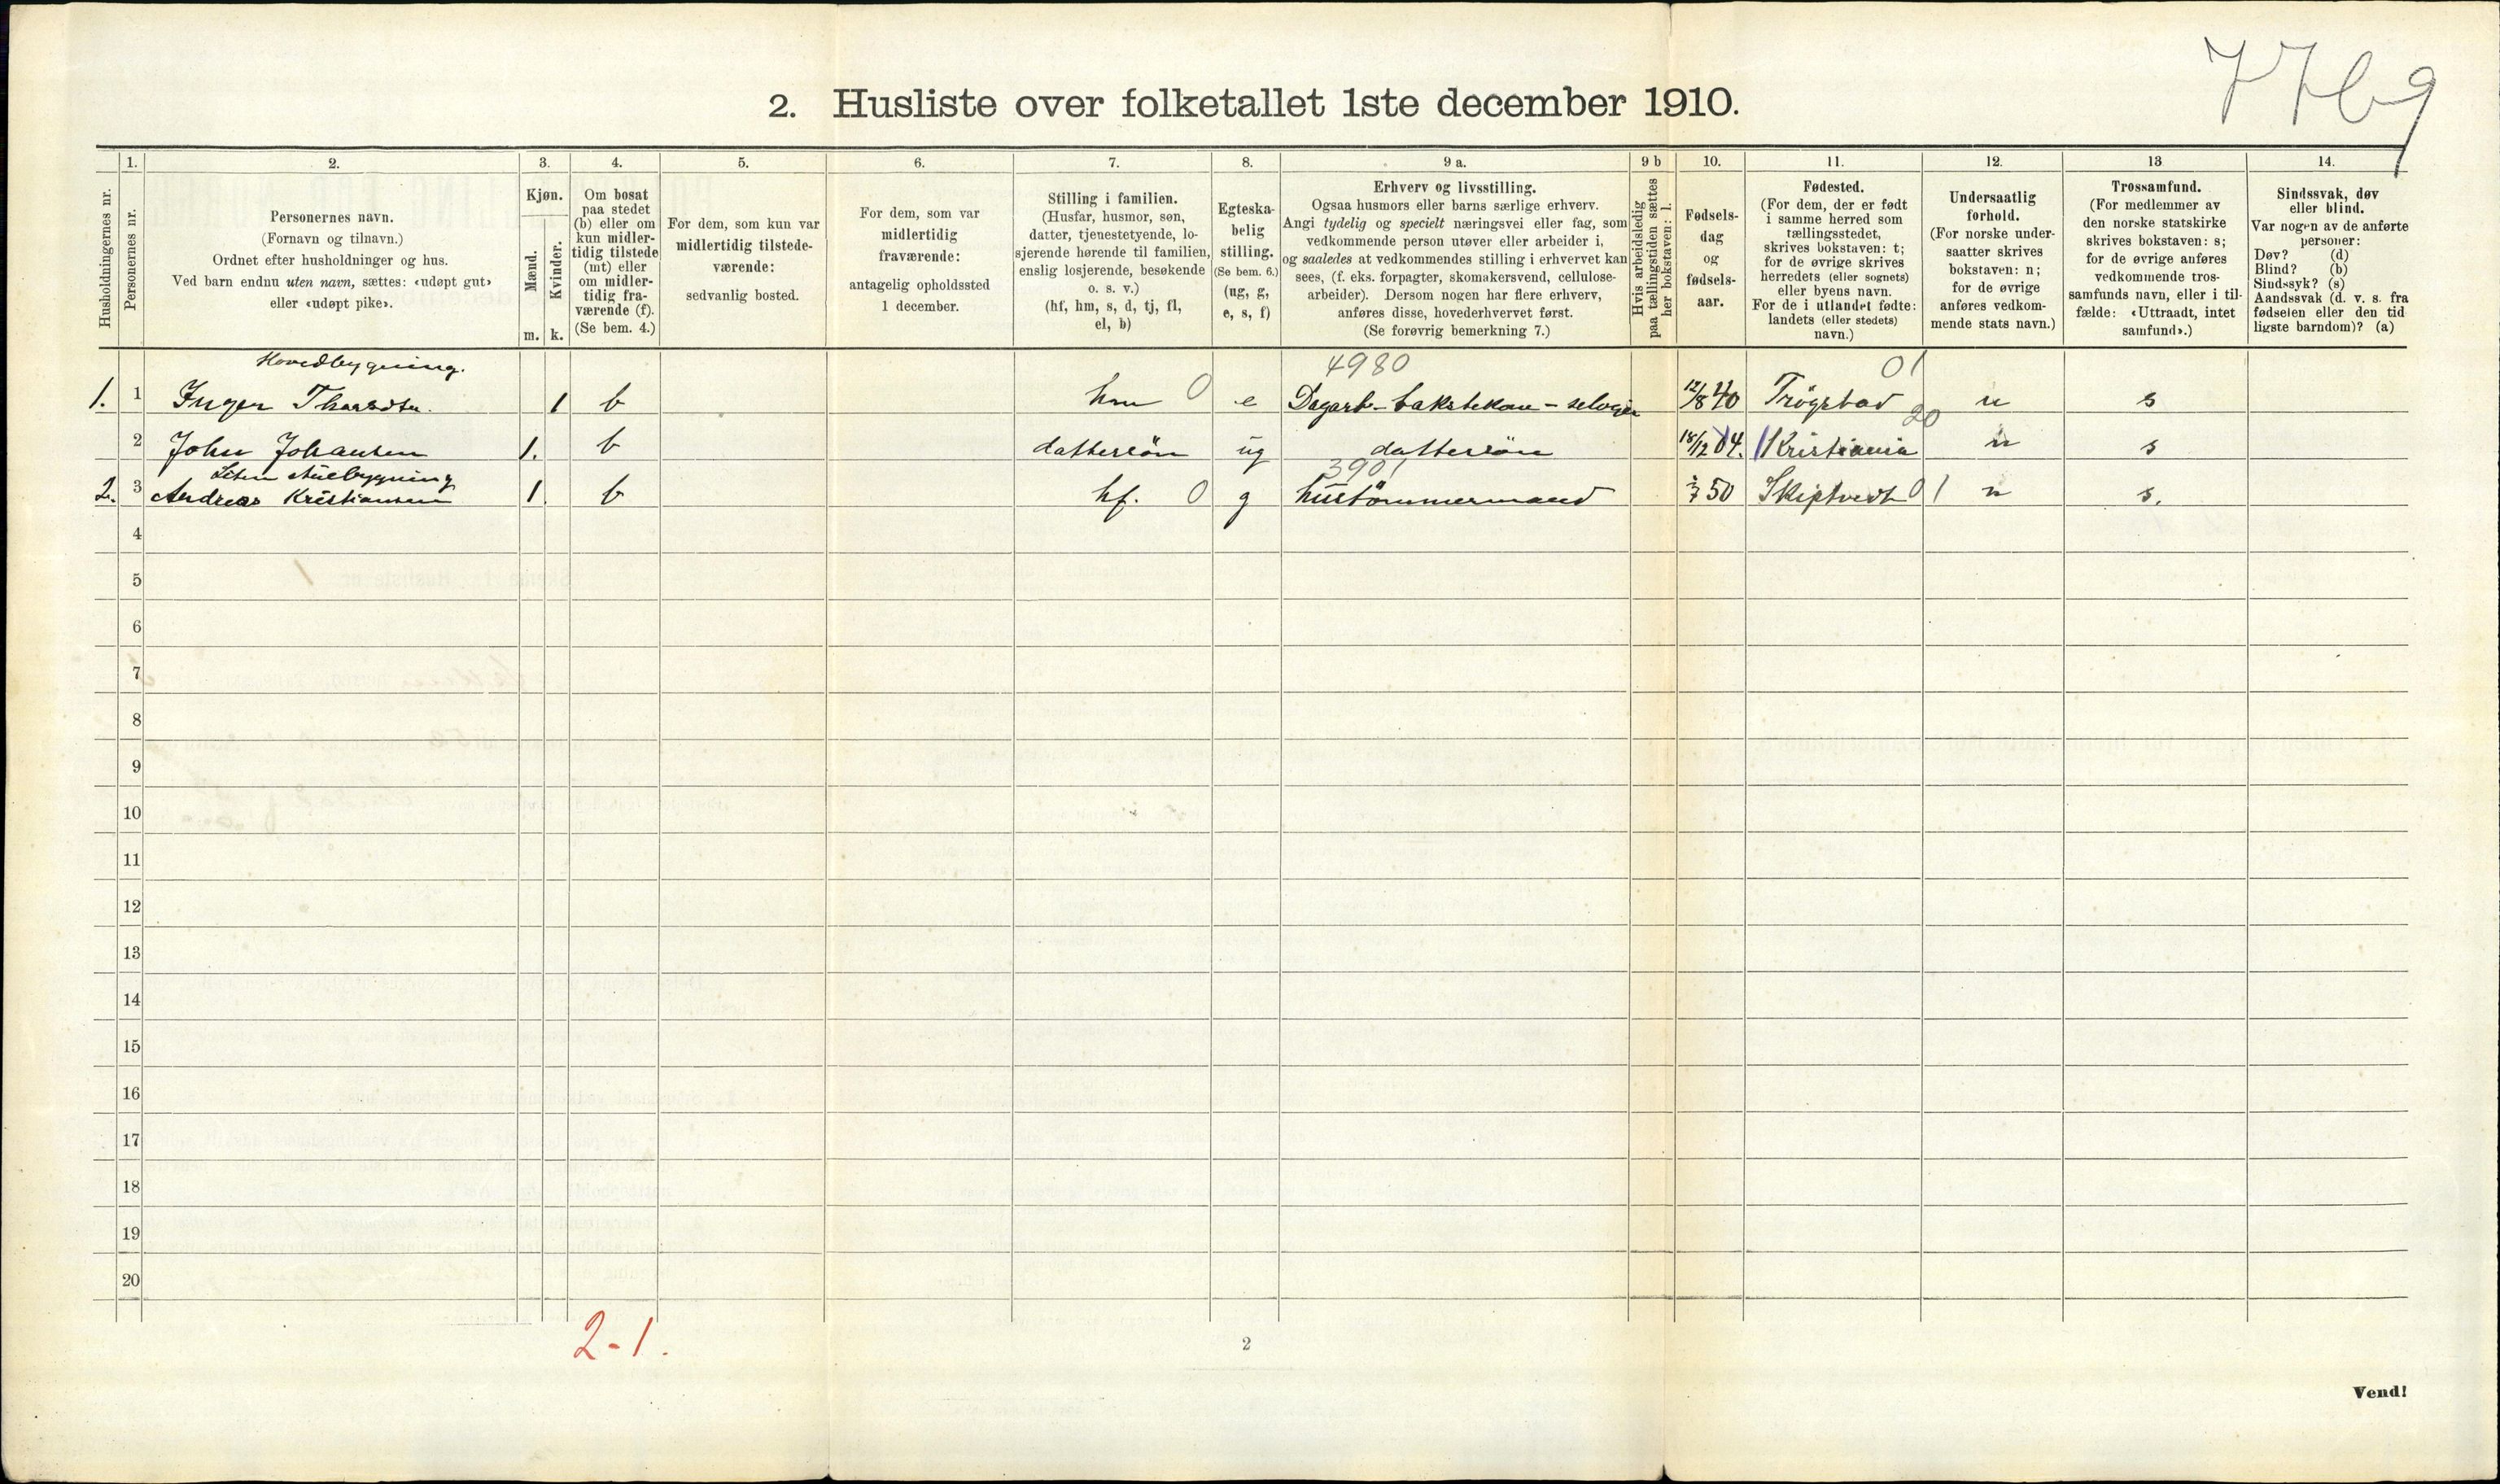 7769
2. Husliste over folketallet 1ste december 1910.
Husholdningernes nr.
1.
Personernes nr.
2.
Personernes navn.
(Fornavn og tilnavn.)
Ordnet efter husholdninger og hus.
Ved barn endnu uten navn, sættes: «udøpt gut»
eller «udøpt pike».
3.
Kjøn.
Mænd.
Kvinder.
m. k.
4.
Om bosat
paa stedet
(b) eller om
kun midler-
tidig tilstede
(mt) eller
om midler-
tidig fra-
værende (f).
(Se bem. 4.)
5.
For dem, som kun var
midlertidig tilstede-
værende:
sedvanlig bosted.
6.
For dem, som var
midlertidig
fraværende:
antagelig opholdssted
1 december.
7.
Stilling i familien.
(Husfar, husmor, søn,
datter, tjenestetyende, lo-
sjerende hørende til familien,
enslig losjerende, besøkende
o. s. v.)
(hf, hm, s, d, tj, fl,
el, b)
8.
Egteska-
belig
stilling.
(Se bem. 6.)
(ug, g,
e, s, f)
9 a.
Erhverv og livsstilling.
Ogsaa husmors eller barns særlige erhverv.
Angi tydelig og specielt næringsvei eller fag, som
vedkommende person utøver eller arbeider i,
og saaledes at vedkommendes stilling i erhvervet kan
sees, (f. eks. forpagter, skomakersvend, cellulose-
arbeider). Dersom nogen har flere erhverv,
anføres disse, hovederhvervet først.
(Se forøvrig bemerkning 7.)
9 b
Hvis arbeidsledig
paa tællingstiden sættes
her bokstaven: l.
10.
Fødsels-
dag
og
fødsels-
aar.
11.
Fødested.
(For dem, der er født
i samme herred som
tællingsstedet,
skrives bokstaven: t;
for de øvrige skrives
herredets (eller sognets)
eller byens navn.
For de i utlandet fødte:
landets (eller stedets)
navn.)
12.
Undersaatlig
forhold.
(For norske under-
saatter skrives
bokstaven: n;
for de øvrige
anføres vedkom-
mende stats navn.)
13
Trossamfund.
(For medlemmer av
den norske statskirke
skrives bokstaven: s;
for de øvrige anføres
vedkommende tros-
samfunds navn, eller i til-
fælde: «Uttraadt, intet
samfund».)
14.
Sindssvak, døv
eller blind.
Var nogen av de anførte
personer:
Døv? (d)
Blind? (b)
Sindssyk? (s)
Aandssvak (d. v. s. fra
fødselen eller den tid
ligste barndom)? (a)
Hovedbygning. 4980 01
1. 1 Inger 1 b hm 0 e Dagarb- 12/8 40 Trøgstad n s
20
2 John Johansen 1. b dattersön ug dattersön 18/12 04. Kristiania n s
Liten stuebygning 3901
2. 3 Andreas Kristiansen 1. b hf. 0 g hustömmermand 50 Skiptvedt 01 n s.
4
5
6
7
8
9
10
11
12
13
14
15
16
17
18
19
20
2-1.
2
Vend!